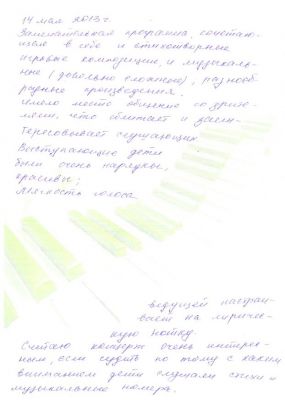 14 мая 2013 г.
Занимательная программа, сочетаю-
щая в себе и стихотворные
игровые композиции, и музыкаль-
ные (довольно сложные), разнооб
разные произведения.
Имело место общение со зрите-
лями, что сближает и заин-
тересовывает слушающих.
Выступающие дети
были очень нарядные,
красивы;
Мягкость голоса
ведущей настраи-
вает на лиричес-
кую нотку.
Считаю концерт очень интерес-
ным, если судить по тому с каким
вниманием дети слушали стихи и
музыкальные номера.